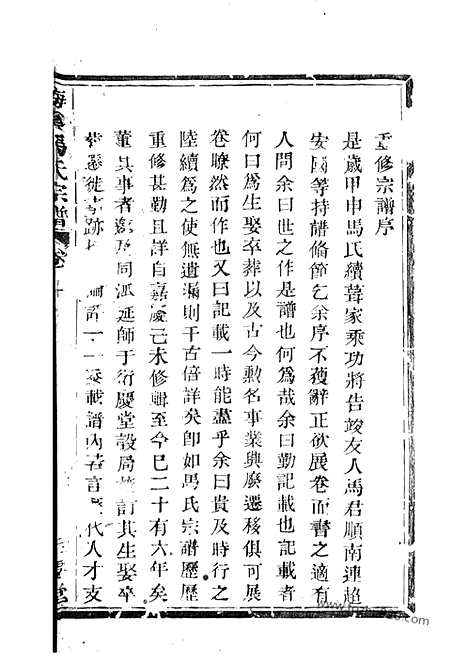 重修宗譜序
是歲甲申馬氏續葺家乘功將告竣友人馬君順南連超
安國等持譜脩節乞余序不獲辭正欲展卷而書之適有
人問余曰世之作是譜也何爲哉余曰勤記載也記載者
何曰爲生娶卒葬以及古今勲名事業與廢遷移俱可展
卷瞭然而作也又曰記載一時能盡乎余曰貴及時行之
陸續爲之使無遺漏則千古倍詳矣卽如馬氏宗譜歷歷
重修甚勤且詳自嘉慶己未修輯至今巳二十有六年矣
董其事者邀及同派延師于衍慶堂設局 訂其生娶卒
葬遷徙 跡 一一 載譜內 言 代人才支
馬氏宗譜 卷